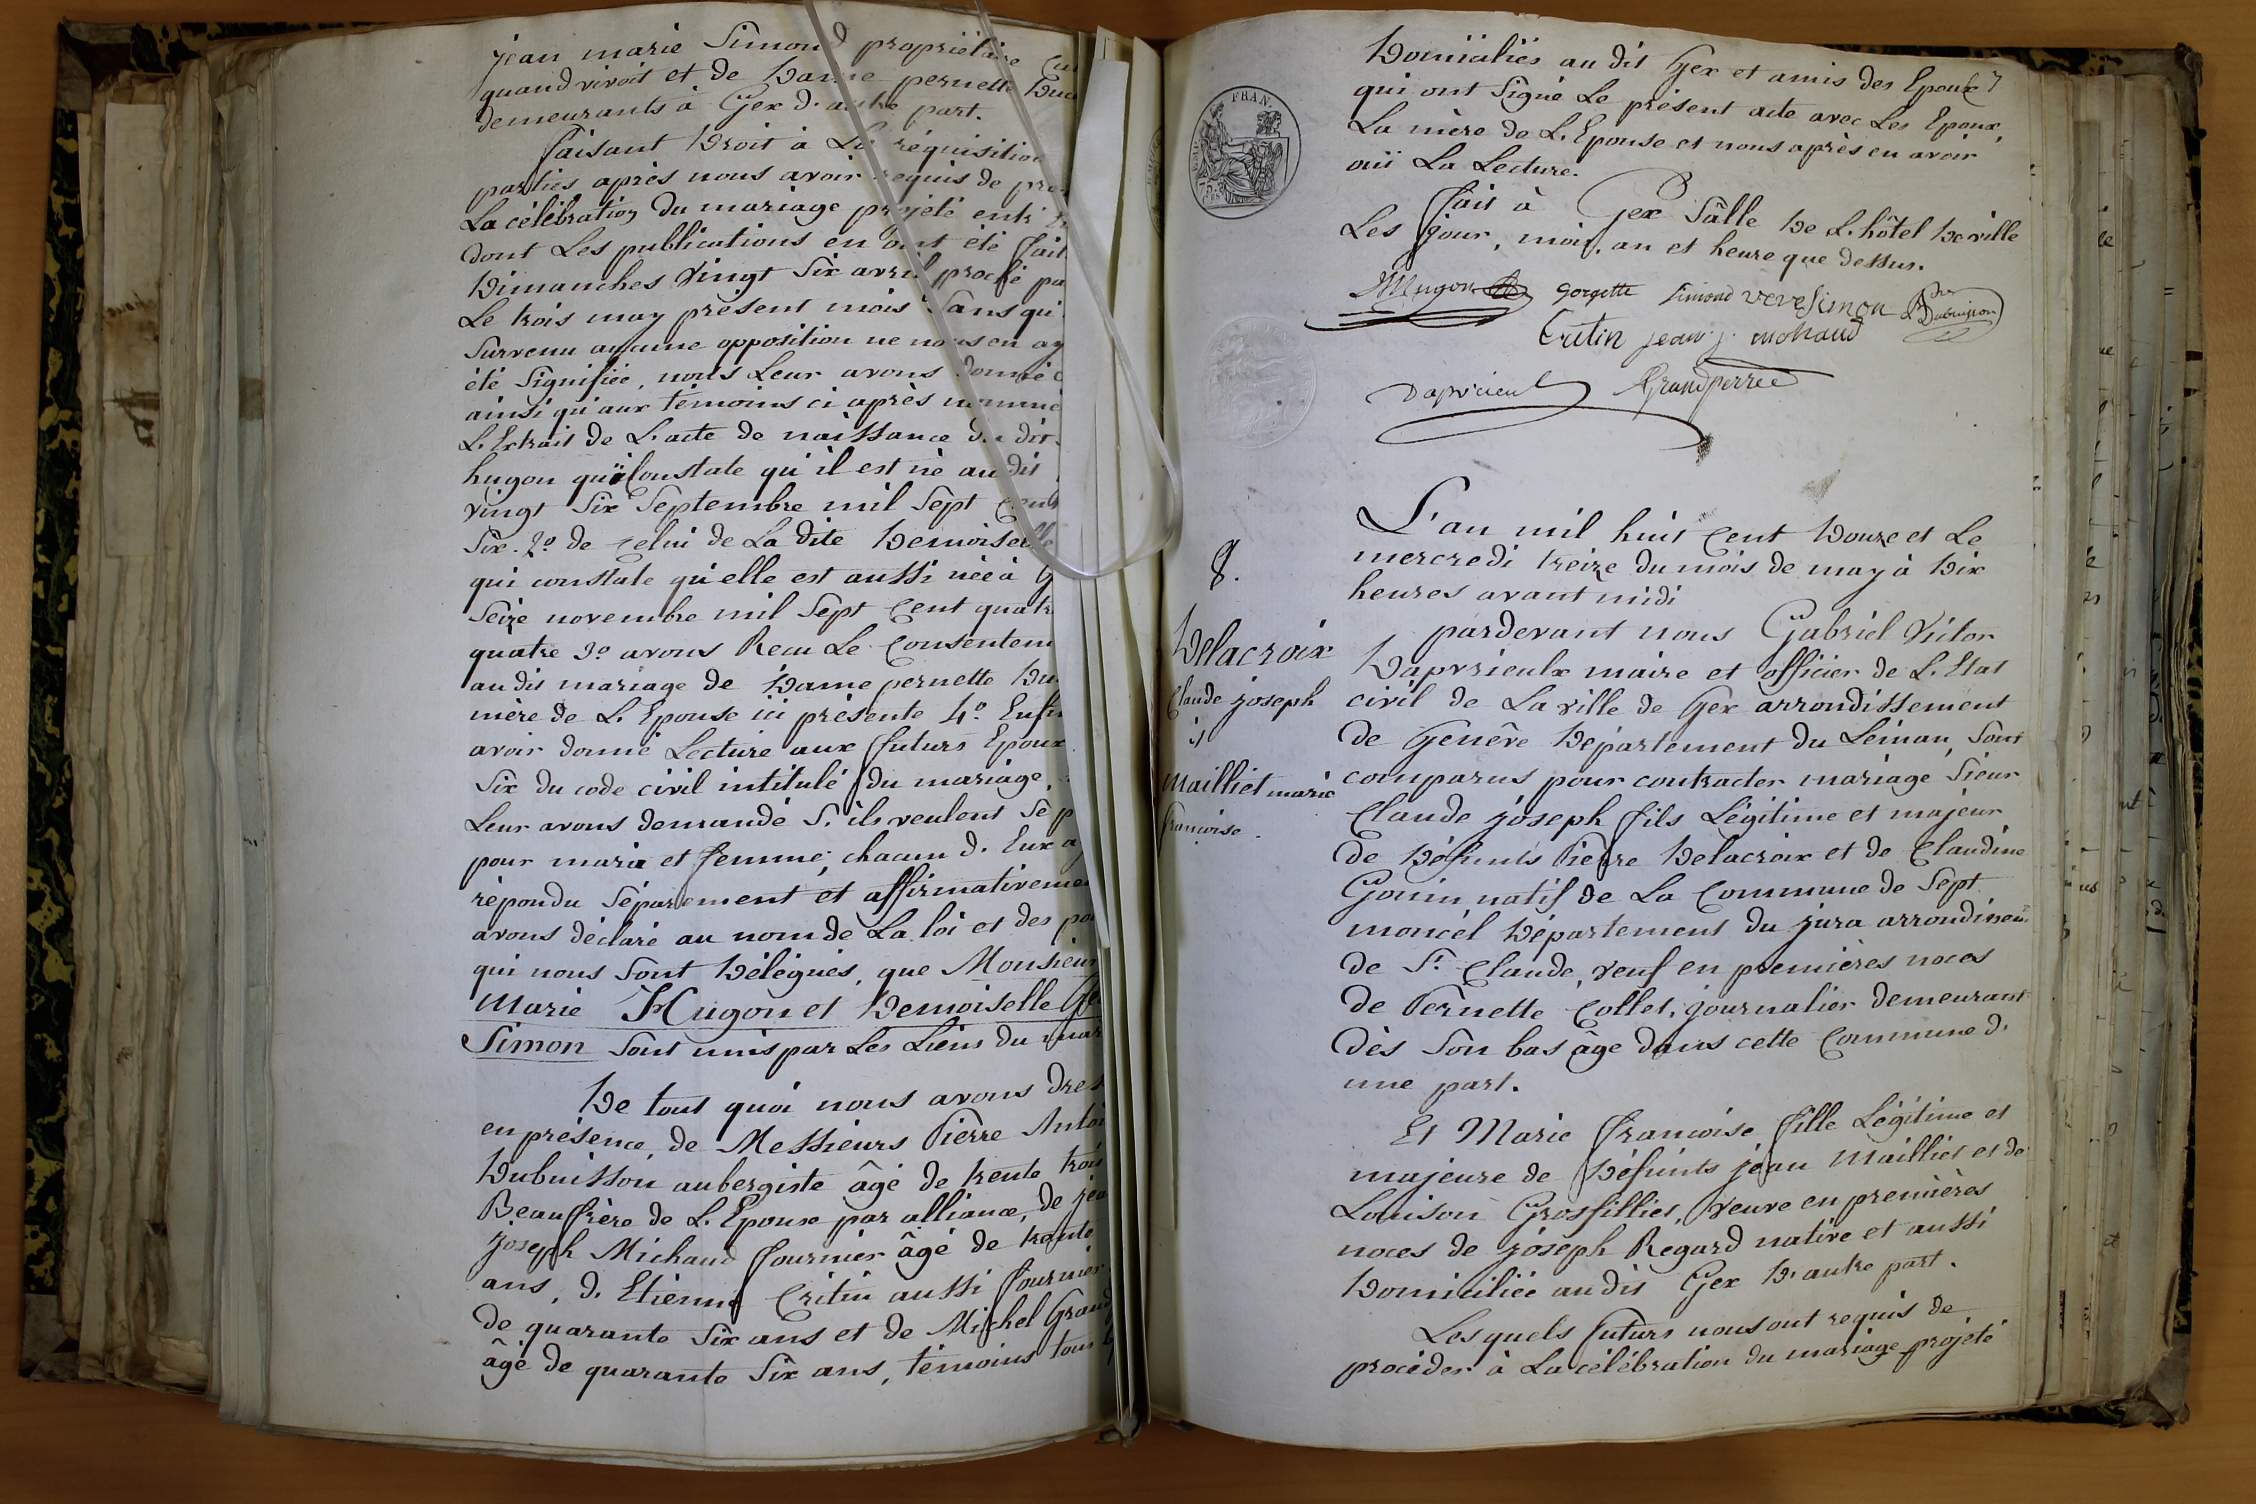 jean marie Simond propriétaire
quand vivoit et de Dame pernette
demeurants à Gex d'autre part.
faisant Droit à La réquisition
parties après nous avoir requis de
La célébration du mariage projeté
dont Les publications en ont été
Dimanches Vingt Six avril proche
Le trois may présent mois Sans qu'
Survenu aucune opposition ne nous en
été Signifiée, nous Leur avons donné
ainsi qu'aux témoins ci après
L'Extrait de L'acte de naissance du dit
hugon qui Constate qu'il est né au dit
vingt Six Septembre mil Sept Cent
Six. 2º de celui de La dite Demoiselle
qui constate qu'elle est aussi née à
Seize novembre mil Sept Cent
quatre 3º avons Recu Le
au dit mariage de Dame pernette
mère de L'Epouse ici présente 4º.
avoir donné Lecture aux futurs Epoux
Six du code civil intitulé du mariage,
Leur avons demandé S'ils veulent Se
pour mari et femme, chacun d'Eux
répondu Séparement et
avons déclaré au nom de La loi et des
qui nous Sont Délégués, que Monsieur
Marie Hugon et Demoiselle
Simon Sont unis par Les Liens du
De tout quoi nous avons
en présence, de Messieurs Pierre
Dubuisson aubergiste âgé de trente trois
Beaufrère de L'Epouse par alliance, de
joseph Michaud fournier âgé de trente
ans, d'Etienne Critin aussi fournier
de quarante Six ans et de Michel
âgé de quarante Six ans, témoins tous
Domiciliés au dit Gex et amis des Epoux
qui ont Signé Le présent acte avec Les Epoux,
La mère de L'Epouse et nous après en avoir
ouï La Lecture.
fait à Gex Sâlle De L'hôtel De ville
Les jour, mois, an et heure que dessus.
gorgette Simond veve Simon Dubuisson
Critin jean j. michaud
Grandperret
FRAN.
L'an mil huit Cent Douze et Le
mercredi treize du mois de may à Dix
heures avant midi
8.
pardevant nous Gabriel Victor
Delacroix
Daprzieulx maire et officier de L'Etat
Claude joseph
civil de La ville de Gex arrondissement
et
de Genêve Département du Léman, Sont
Mailliet marie
comparus pour contracter mariage Sieur
francoise.
Claude joseph fils Légitime et majeur
de Défunts Pierre Delacroix et de Claudine
Gonin natif de La Commune de Sept
moncel Département du jura
de St. Claude, veuf en premières noces
de Pernette Collet, journalier demeurant
dès Son bas âge dans cette Commune d'
une part.
Et Marie francoise fille Légitime et
majeure de Défunts jean Mailliet et de
Louison Grosfilliet, Veuve en premières
noces de joseph Regard native et aussi
Domiciliée au dit Gex D'autre part.
Lesquels futurs nous ont requis de
procéder à La célébration du mariage projeté